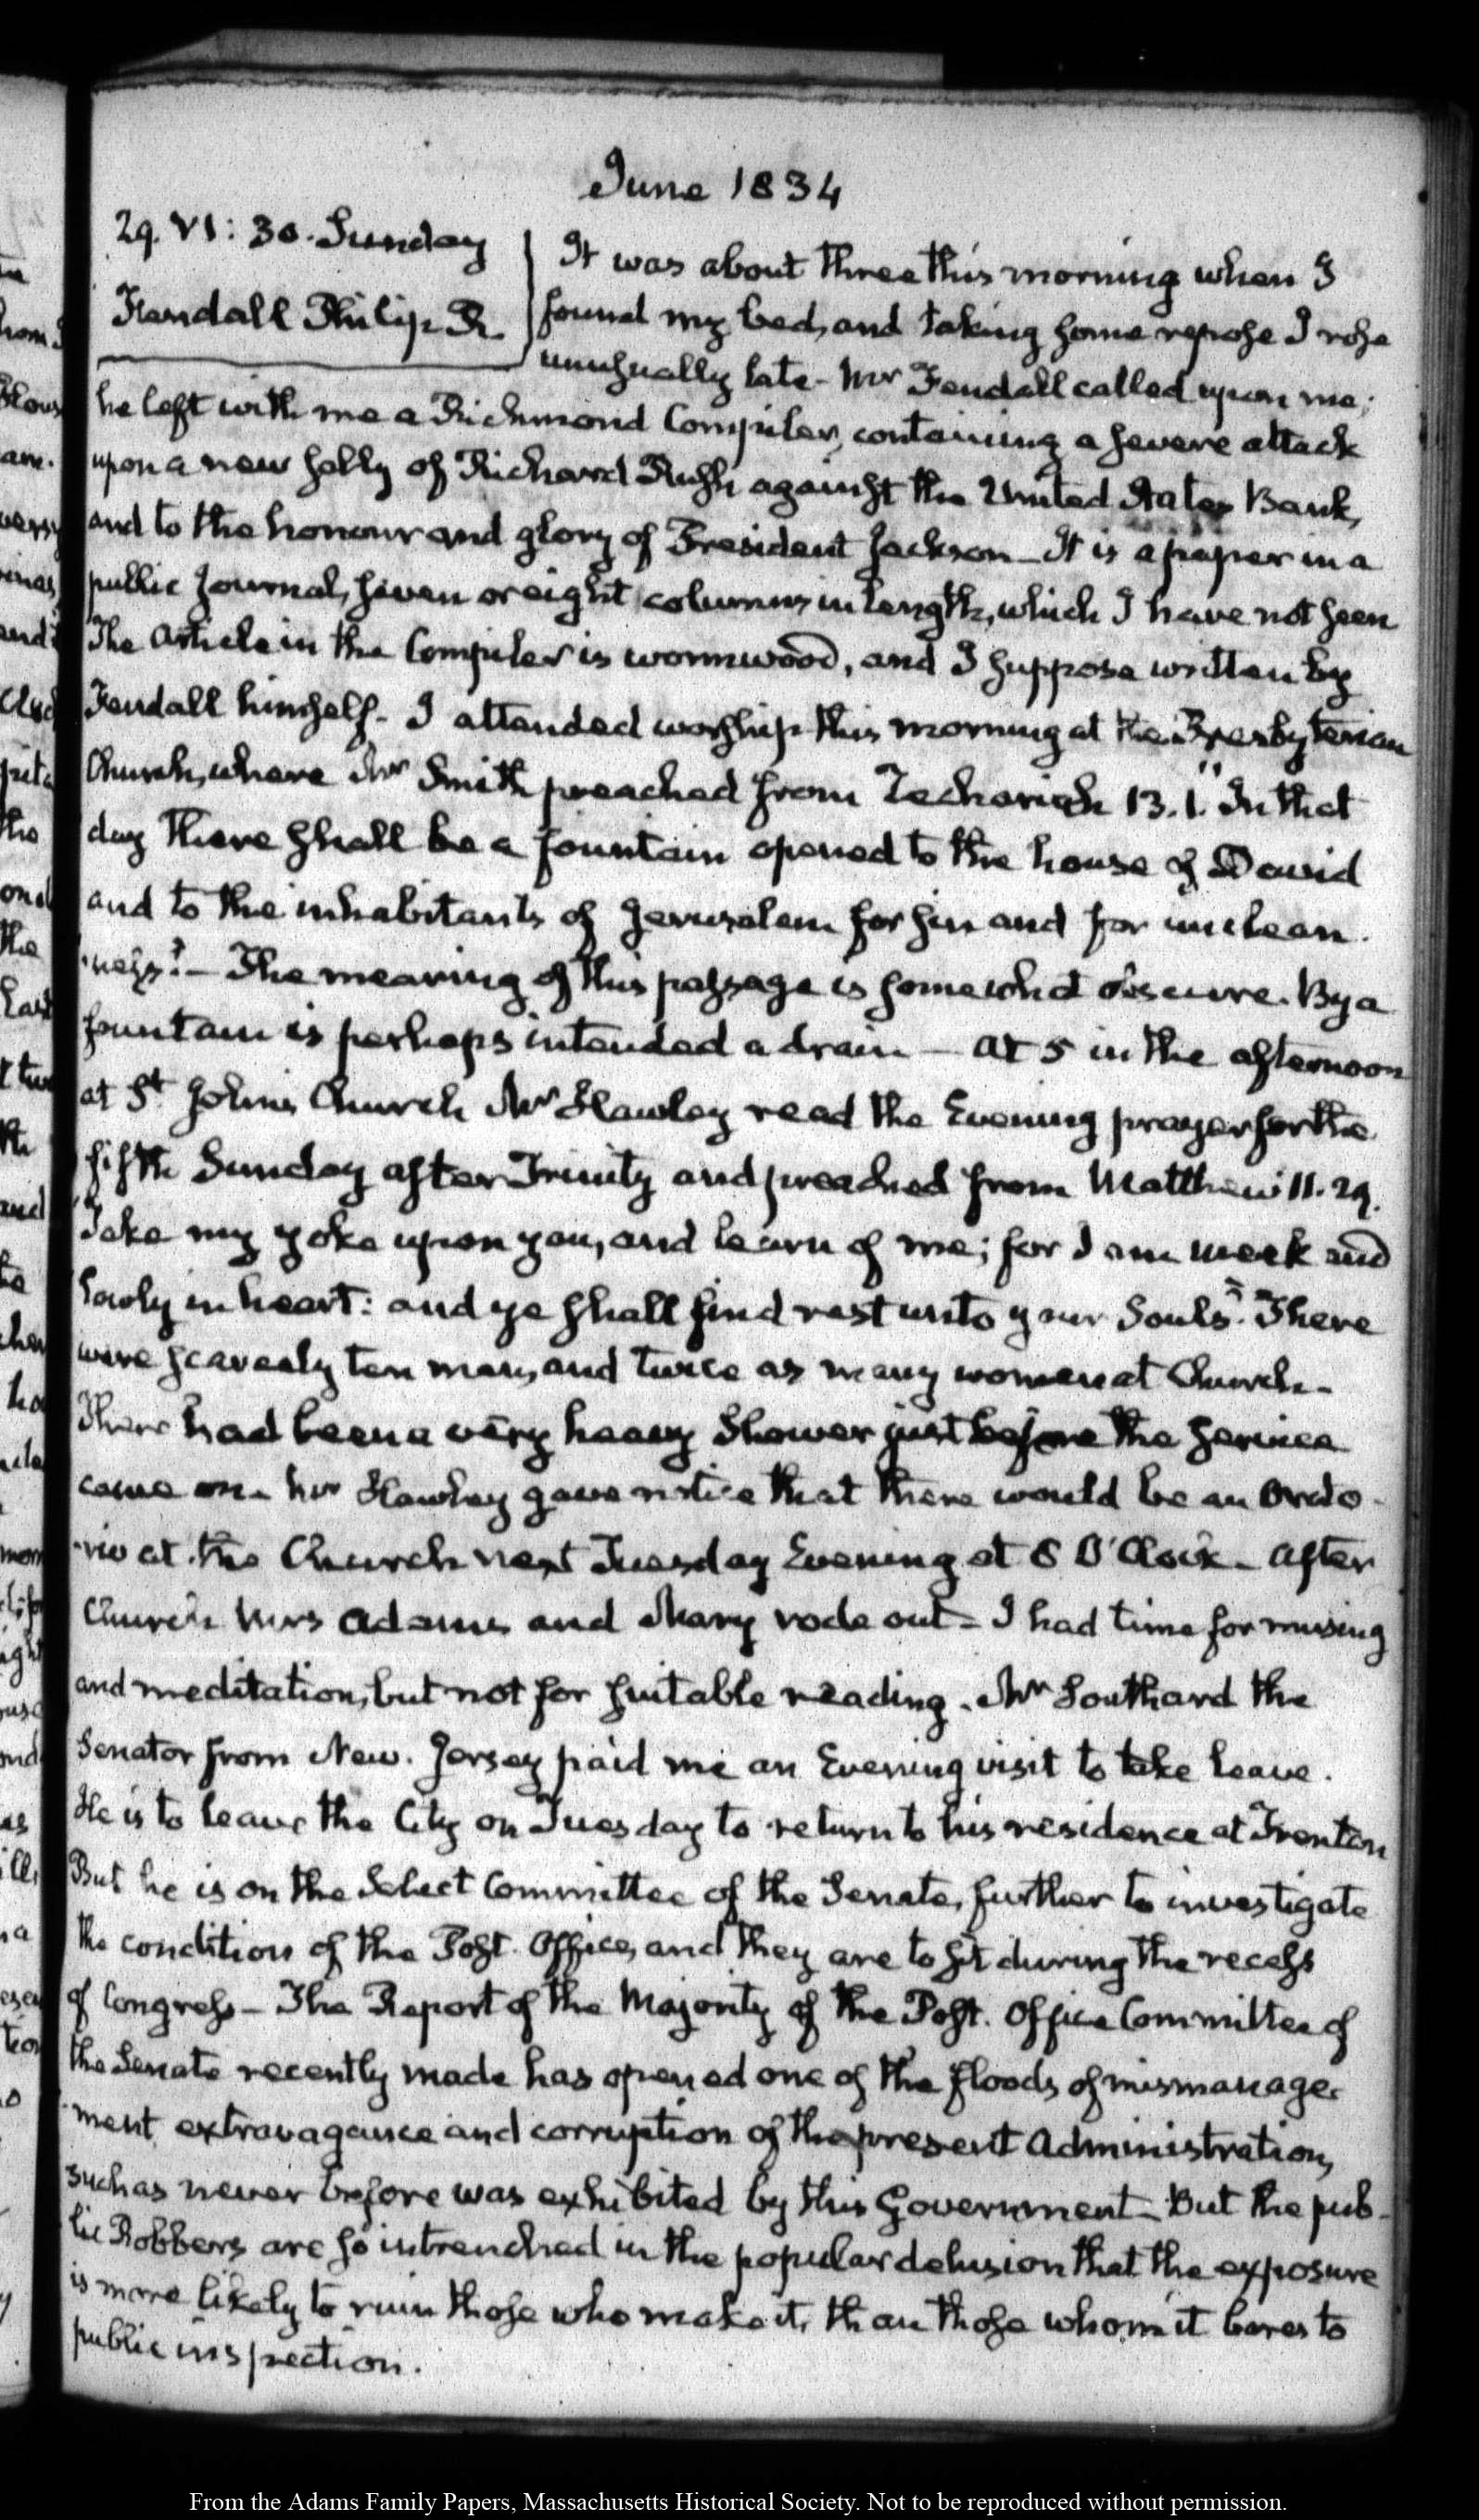 June 1834
29. VI: 30. Sunday
Fendall Philip R.
It was about three this morning when I
found my bed, and taking some repose I rose
unusually late - Mr Fendall called upon me;
he left with me a Richmond Compiler, containing a severe attack
upon a new folly of Richard Rush against the United States Bank,
and to the honour and glory of President Jackson - It is a paper in a
public Journal, seven or eight columns in length, which I have not seen
The Article in the Compiler is wormwood, and I suppose written by
Fendall himself. I attended worship this morning at the Presbyterian
Church, where Mr Smith preached from Zechariah 13.1. "In that
day there shall be a fountain opened to the house of David
and to the inhabitants of Jerusalem for sin and for unclean-
-ness." - The meaning of this passage is somewhat obscure. By a
fountain is perhaps intended a drain - At 5 in the afternoon
at St. John's Church Mr Hawley read the Evening prayer for the
fifth Sunday after Trinity and preached from Matthew 11.29.
Take my yoke upon you, and learn of me; for I am meek and
lowly in heart: and ye shall find rest unto your Souls." There
were scarcely ten men, and twice as many women at Church -
There had been a very heavy Shower just before the service
came on - Mr Hawley gave notice that there would be an Orato-
-rio at the Church next Tuesday Evening at 8 O'Clock - After
Church Mrs Adams and Mary rode out - I had time for musing
and meditation, but not for suitable reading. Mr Southard the
Senator from New-Jersey paid me an Evening visit to take leave.
He is to leave the City on Tuesday to return to his residence at Trenton
But he is on the Select Committee of the Senate, further to investigate
the condition of the Post-Office, and they are to sit during the recess
of Congress - The Report of the Majority of the Post-Office Committee of
the Senate recently made has opened one of the floods of mismanage-
-ment extravagance and corruption of the present Administration,
such as never before was exhibited by this Government - But the pub-
lic Robbers are so intrenched in the popular delusion that the exposure
is more likely to ruin those who make it, than those whom it bares to
public inspection.
From the Adams Family Papers, Massachusetts Historical Society. Not to be reproduced without permission.